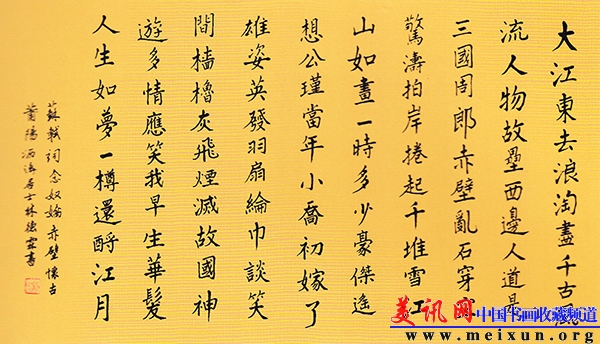 大江東去浪淘盡千古風
流人物故壘西邊人道是
三國周郎赤壁亂石穿空
驚濤拍岸捲起千堆雪江
山如畫一時多少豪傑遙
想公瑾當年小喬初嫁了
雄姿英發羽扇綸巾談笑
間檣櫓灰飛煙滅故國神
遊多情應笑我早生華髮
人生如夢一樽還酹江月
蘇軾詞念奴嬌赤壁懷古
莆陽居士林德霖書
美讯网 中国书画收藏频道
www.meixun.org